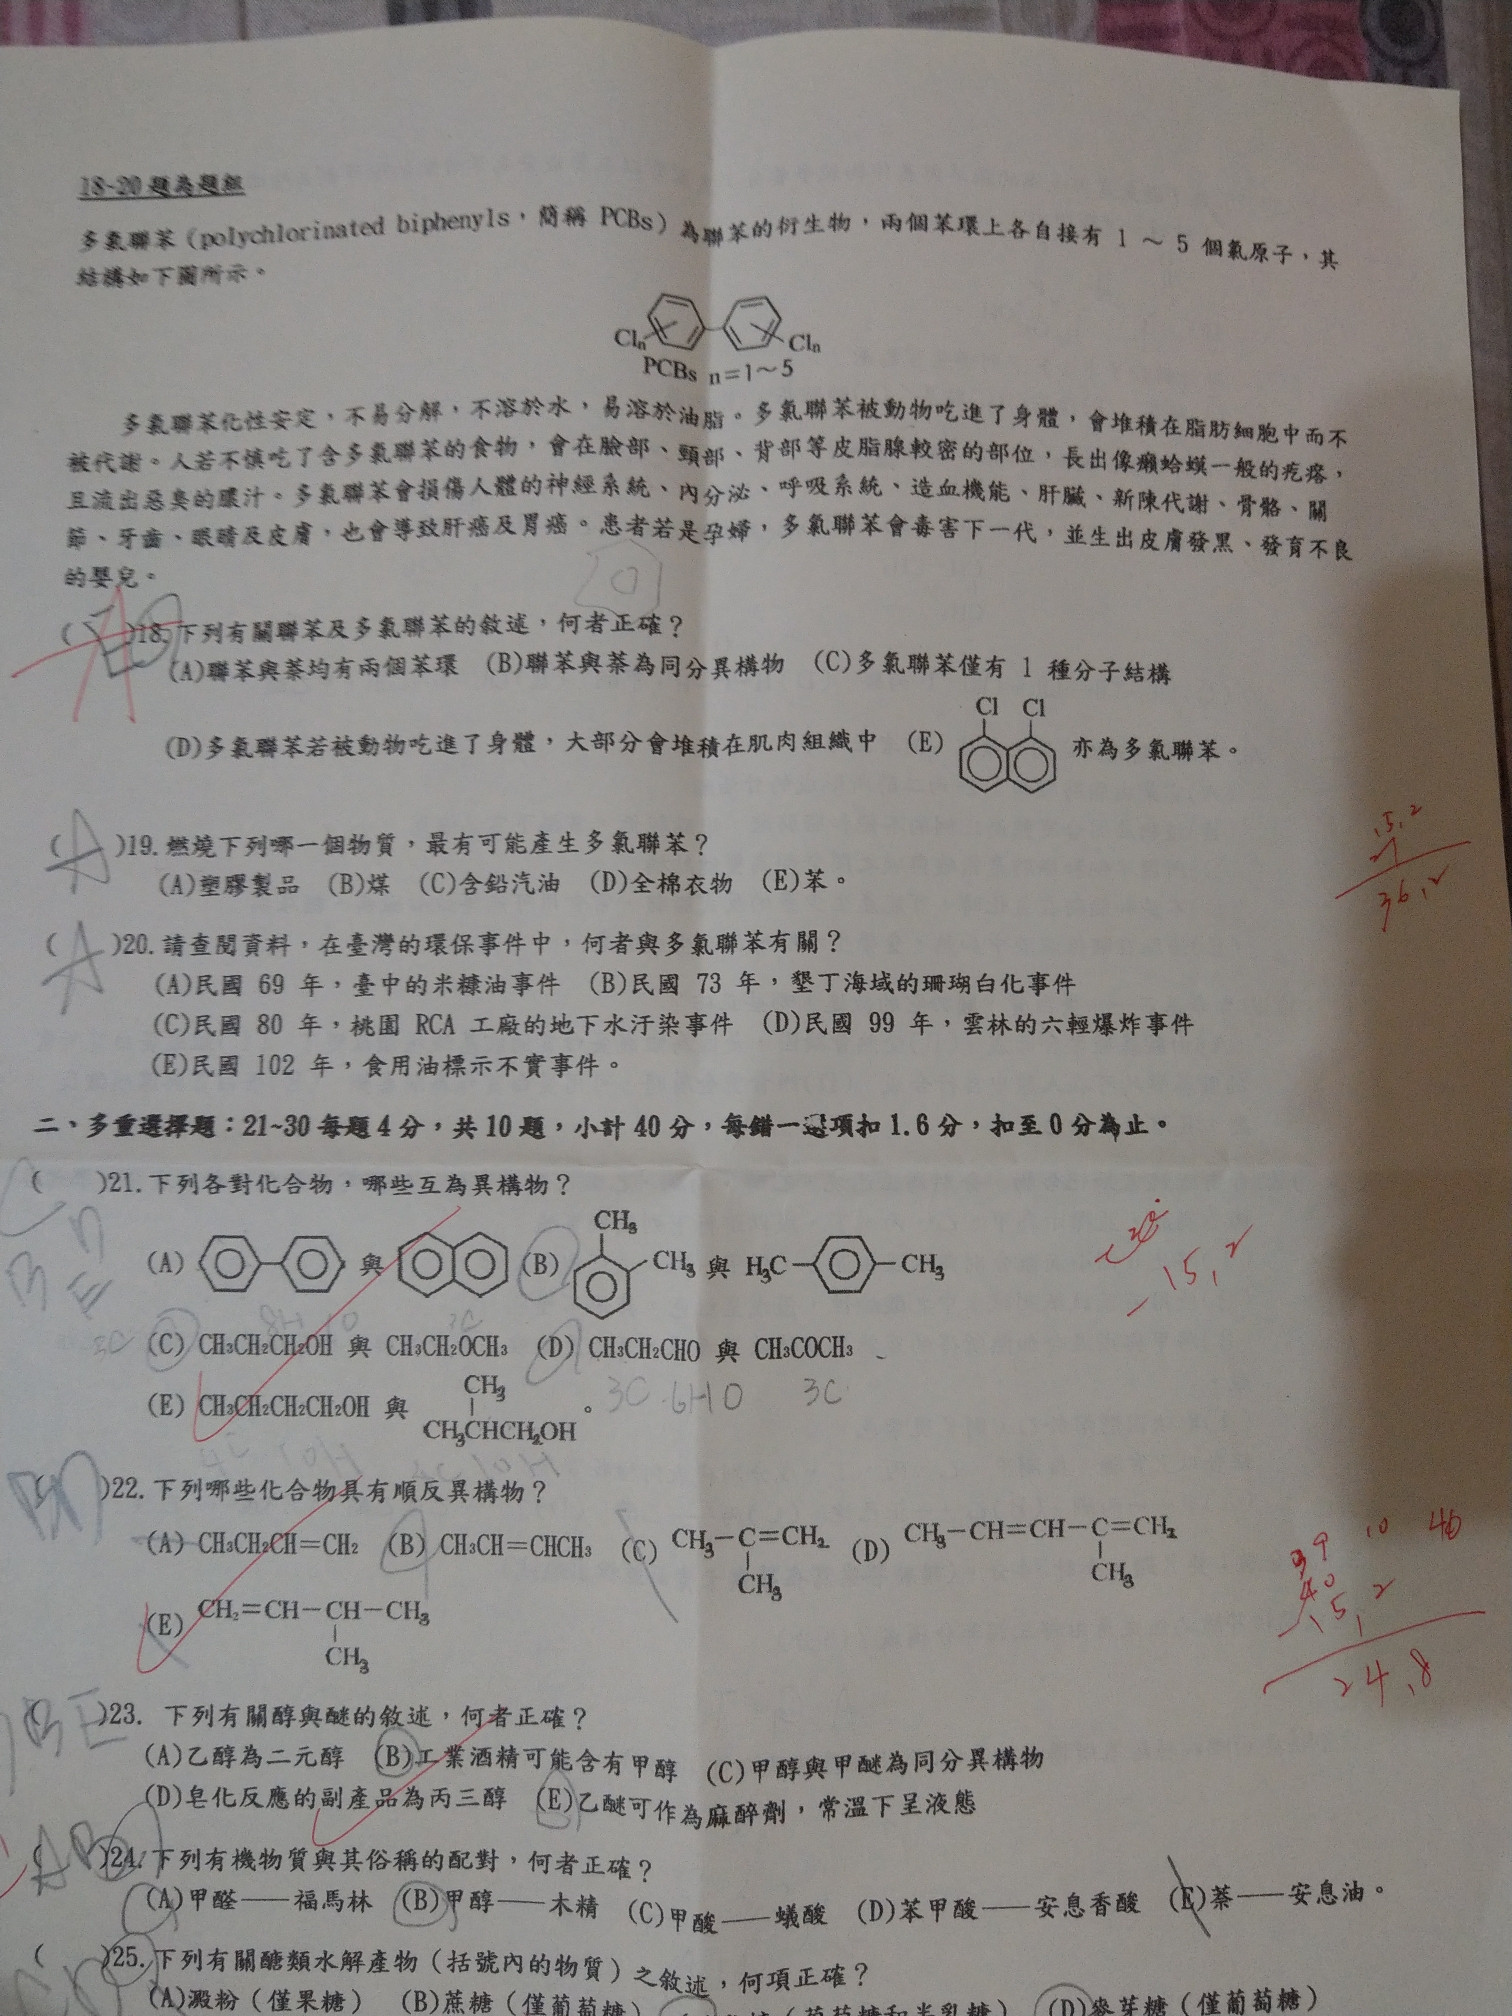 18~20題為題組
多氯聯苯(polychlorinated biphenyls,簡稱 PCBs)為聯苯的衍生物,兩個苯環上各自接有 1 ~ 5 個氯原子,其
結構如下圖所示。
Cln Cln
PCBs n=1~5
多氯聯苯化性安定,不易分解,不溶於水,易溶於油脂。多氯聯苯被動物吃進了身體,會堆積在脂肪細胞中而不
被代謝。人若不慎吃了含多氯聯苯的食物,會在臉部、頸部、背部等皮脂腺較密的部位,長出像癩蛤蟆一般的疙瘩,
且流出惡臭的膿汁。多氯聯苯會損傷人體的神經系統、內分泌、呼吸系統、造血機能、肝臟、新陳代謝、骨骼、關
節、牙齒、眼睛及皮膚,也會導致肝癌及胃癌。患者若是孕婦,多氯聯苯會毒害下一代,並生出皮膚發黑、發育不良
的嬰兒。
( )18.下列有關聯苯及多氯聯苯的敘述,何者正確?
(A)聯苯與萘均有兩個苯環 (B)聯苯與萘為同分異構物 (C)多氯聯苯僅有 1 種分子結構
Cl Cl
(D)多氯聯苯若被動物吃進了身體,大部分會堆積在肌肉組織中 (E) 亦為多氯聯苯。
(A)19.燃燒下列哪一個物質,最有可能產生多氯聯苯?
(A)塑膠製品 (B)煤 (C)含鉛汽油 (D)全棉衣物 (E)苯。
15.2
21
36.2
(A)20.請查閱資料,在臺灣的環保事件中,何者與多氯聯苯有關?
(A)民國 69 年,臺中的米糠油事件 (B)民國 73 年,墾丁海域的珊瑚白化事件
(C)民國 80 年,桃園 RCA 工廠的地下水汙染事件 (D)民國 99 年,雲林的六輕爆炸事件
(E)民國 102 年,食用油標示不實事件。
二、多重選擇題:21~30每題4分,共10題,小計40分,每錯一選項扣1.6分,扣至0分為止。
( )21.下列各對化合物,哪些互為異構物?
CH3
(A) 與 (B) CH3 與 H3C CH3
-15.2
(C) CH3CH2CH2OH 與 CH3CH2OCH3 (D) CH3CH2CHO 與 CH3COCH3
CH3
(E) CH3CH2CH2CH2OH 與 CH3CHCH2OH。
3C 6H O 3C
( )22.下列哪些化合物具有順反異構物?
(A) CH3CH2CH=CH2 (B) CH3CH=CHCH3 (C) CH3-C=CH2 (D) CH3-CH=CH-C=CH2
CH3 CH3
(E) CH2=CH-CH-CH3
CH3
39 10 40
40
15.2
24.8
(BE)23. 下列有關醇與醚的敘述,何者正確?
(A)乙醇為二元醇 (B)工業酒精可能含有甲醇 (C)甲醇與甲醚為同分異構物
(D)皂化反應的副產品為丙三醇 (E)乙醚可作為麻醉劑,常溫下呈液態
( )24.下列有機物質與其俗稱的配對,何者正確?
(A)甲醛——福馬林 (B)甲醇——木精 (C)甲酸——蟻酸 (D)苯甲酸——安息香酸 (E)萘——安息油。
( )25.下列有關醣類水解產物(括號內的物質)之敘述,何項正確?
(A)澱粉(僅果糖) (B)蔗糖(僅葡萄糖) (D)麥芽糖(僅葡萄糖)